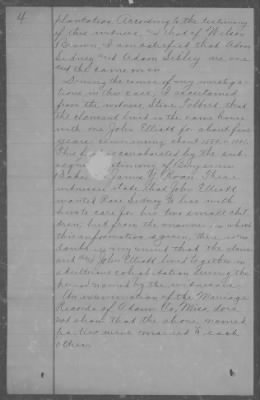 4
plantation. According to the testimony
of this witness, & that of Wilson
Brown, I am satisfied that Adam
Sidney and Adam Sibley are one
and the same man.
During the course of my investiga-
tions in this case, I ascertained
from the witness, Steve Tolbert that
the claimant lived in the same house
with one John Elliott for about five
years commencing about
This is corroborated by the sub-
sequent testimony of
Baker & James W. Roan. These
witnesses state that John Elliott
wanted Rose Sidney to live with
him to care for his two small chil-
dren, but from the manner in which
this information is given, there is no
doubt in my mind that the claim-
ant and John Elliott lived together in
adulterous cohabitation during the
period named by the witnesses.
An examination of the Marriage
Records of Adams Co, Miss. does
not show that the above named
parties were married to each
other.